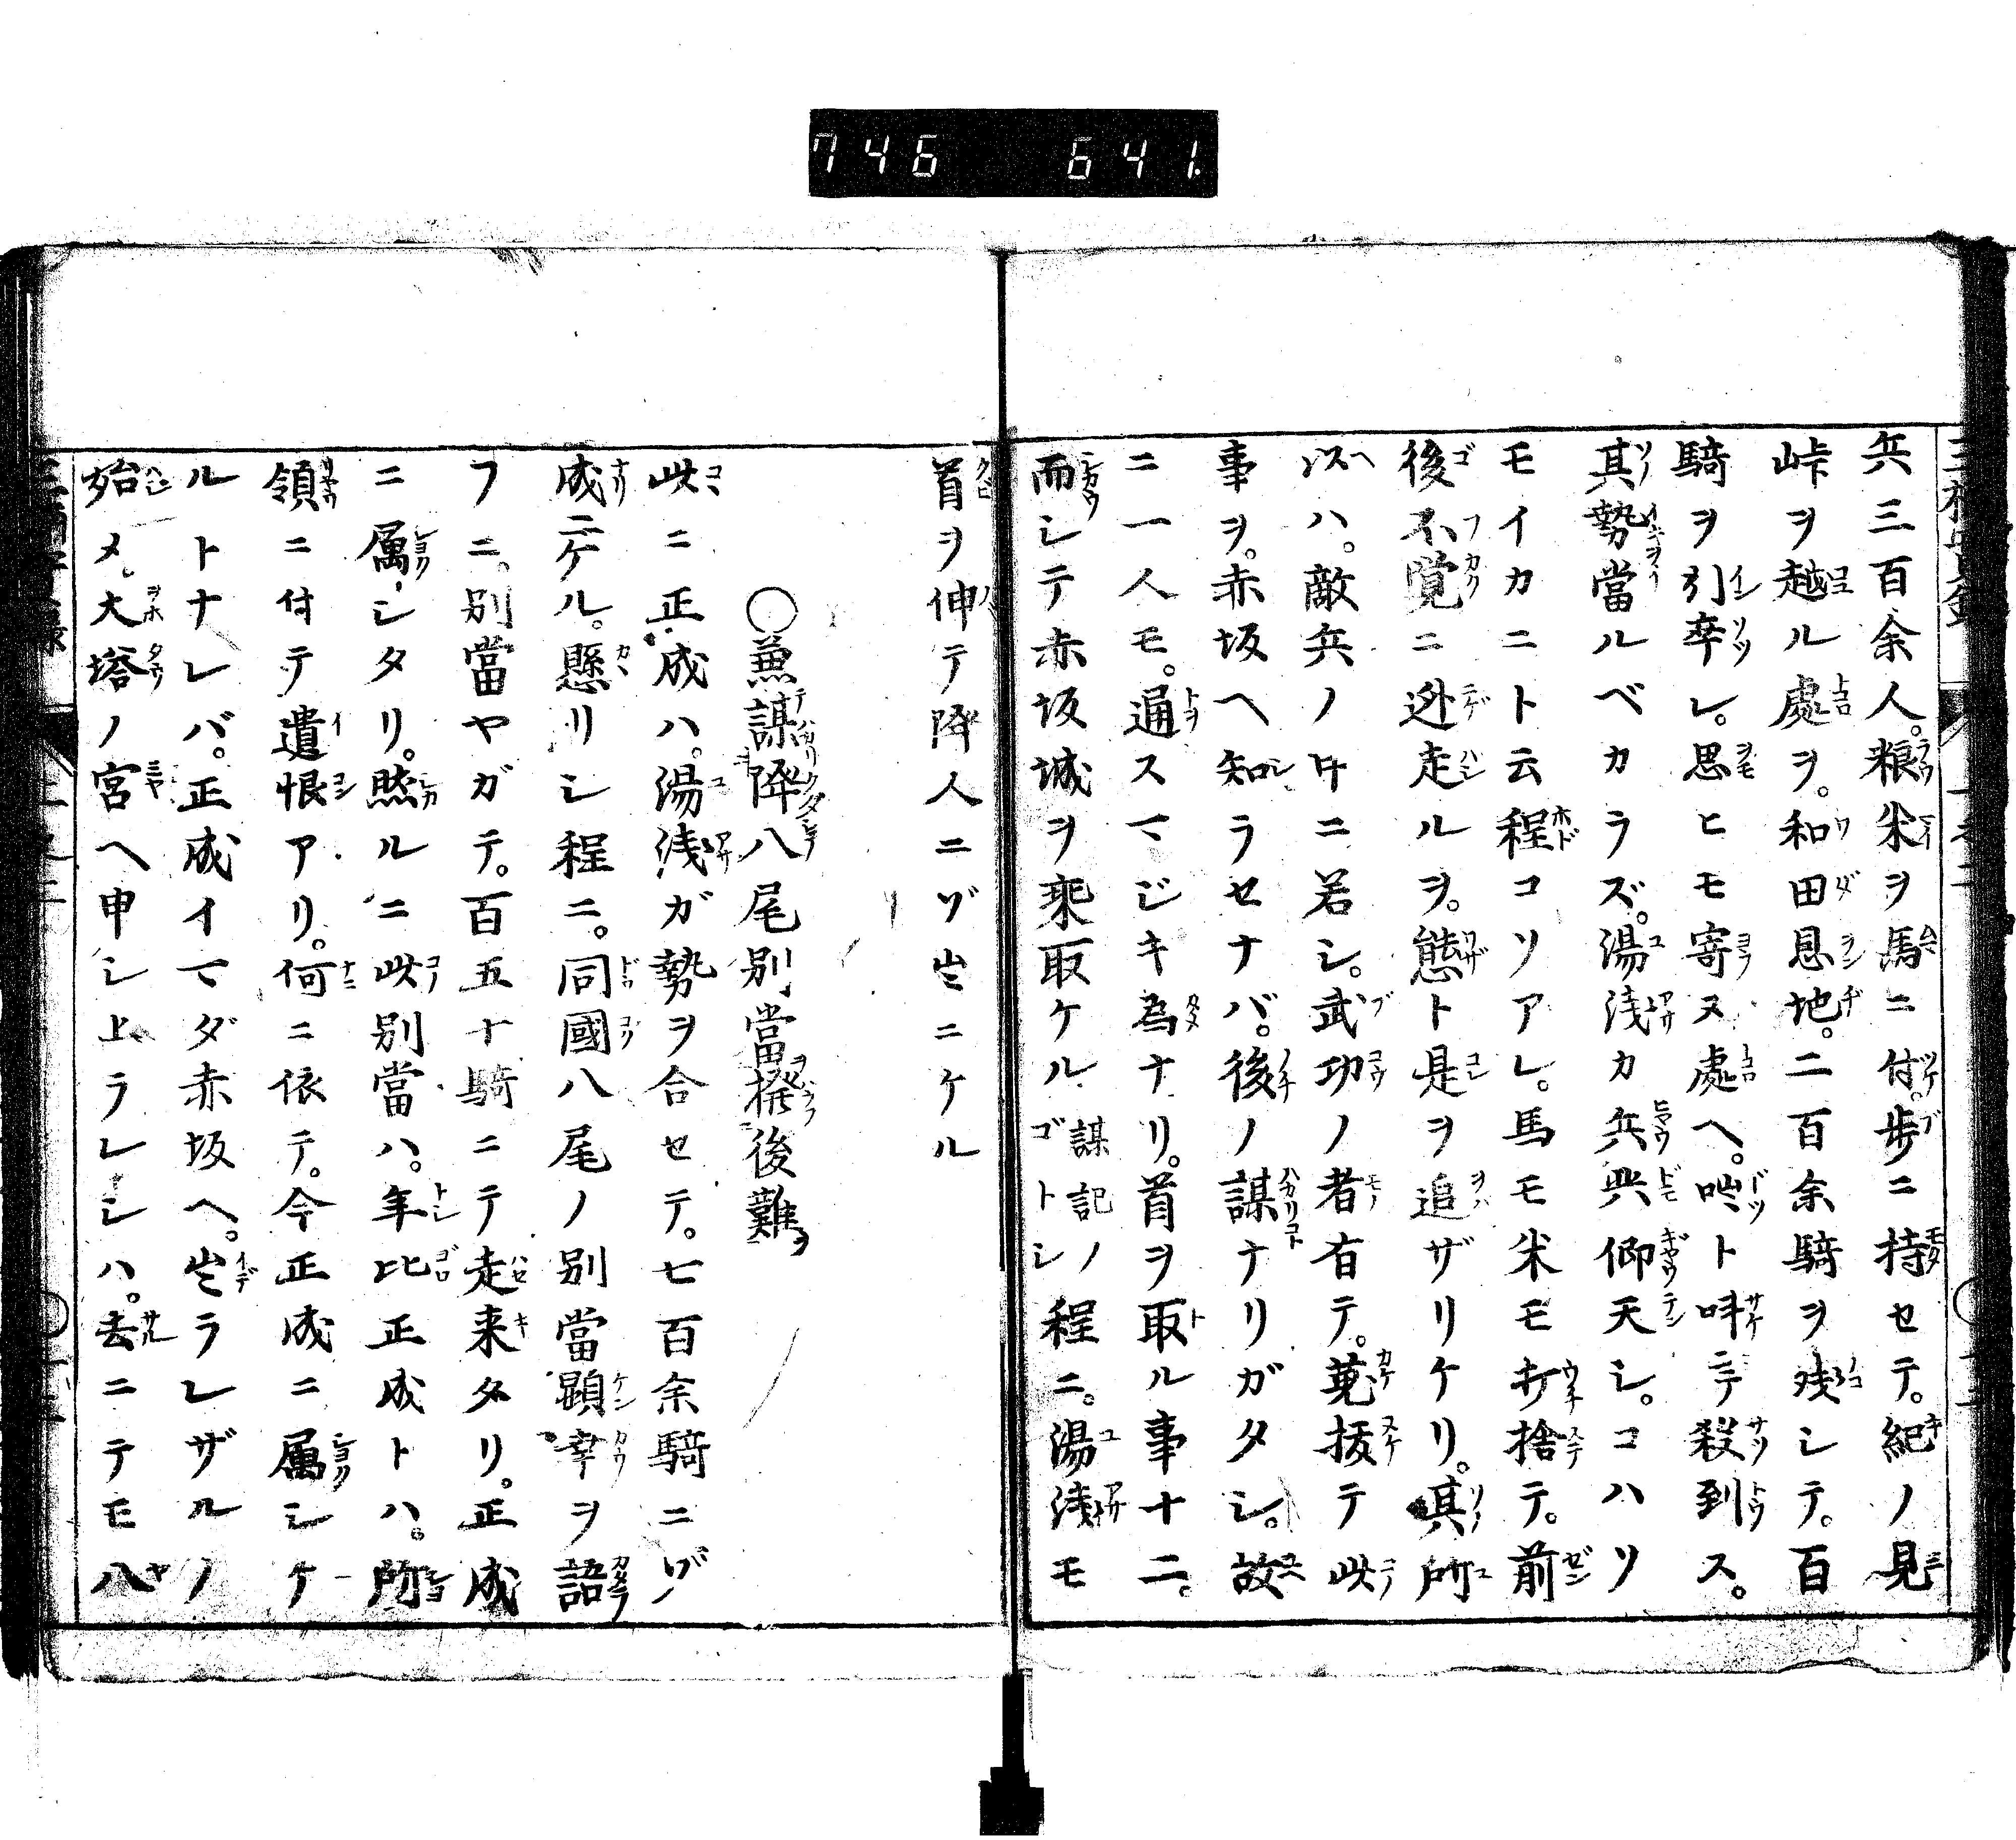 746 641.
兵三百余人。粮米ヲ馬ニ付。歩ニ持セテ。紀ノ見
峠ヲ越ル處ヲ。和田恩地。二百余騎ヲ残シテ。百
騎ヲ引率し。思ヒモ寄ヌ處へ。咄ト呌テ殺到ス。
其勢當ルベカラズ。湯浅カ兵共仰天シ。コハソ
モイカニト云程コソアレ。馬モ米モ打捨テ。前
後不覚ニ迯走ルヲ。態ト是ヲ追ザリケリ。其所
以ハ。敵兵ノ中ニ若シ。武功ノ者有テ。蒐抜テ此
事ヲ。赤坂ヘ知ラセナバ。後ノ謀ナリガタシ。故
ニ一人モ。通スマジキ為ナリ。首ヲ取ル事十二。
而シテ赤坂城ヲ乗取ケル謀記ノゴトシ程ニ。湯浅モ
首ヲ伸テ降人ニゾ出ニケル
○無謀降八尾別當撥後難ヲ
此ニ正成ハ。湯浅ガ勢ヲ合セテ。七百余騎ニゾ
成ニケル。懸リシ程ニ。同國八尾ノ別當顕幸ヲ語
フニ。別當ヤガテ。百五十騎ニテ走来タリ。正成
ニ属シタリ。然ルニ此別當ハ。年比正成トハ。所
領ニ付テ遺恨アリ。何ニ依テ。今正成ニ属シケ
ルトナレバ。正成イマダ赤坂ヘ。出ラレザルノ
始メ。大塔ノ宮ヘ申シ上ラレシハ。去ニテモ八